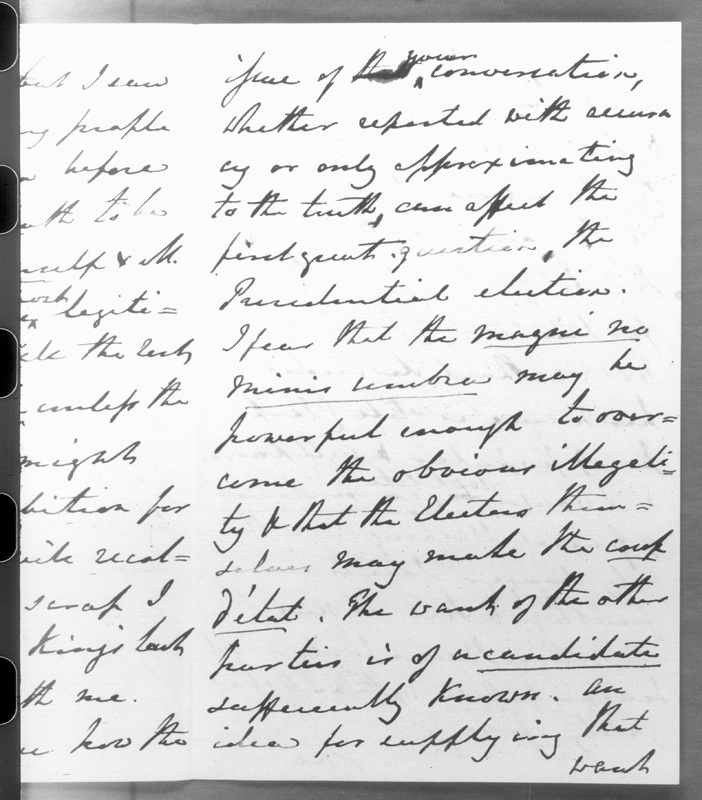 but I saw
people
before
to be
self & M.
legiti=
the rest
unless the
might
bition for
recol=
scrap I
King's last
th me.
how the
issue of your conversation,
whether reported with accura
cy or only approximating
to the truth, can affect the
first great question, the
Presidential election.
I fear that the magni no
minis umbra may be
powerful enough to over=
come the obvious illegali=
ty & that the Electors them=
selves may make the coup
d'état. The want of the other
parties is of a candidate
sufficiently known. An
idea for supplying that
want